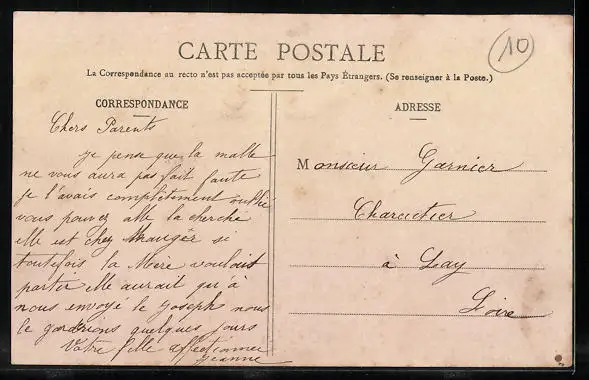 CARTE POSTALE
10
La Correspondance au recto n'est pas acceptée par tous les Pays Étrangers. (Se renseigner à la Poste.)
CORRESPONDANCE
ADRESSE
Chers Parents
je pense que la malle
ne vous aura pas fait faute
je l'avais complètement oublié
vous pouvez allé la cherché
elle est chez si
toutefois la Mère voulait
partir elle aurait qu'à
nous envoyé le Joseph nous
le garderions quelques jours
Votre fille affectionnée
Jeanne
Monsieur Garnier
Charcutier
à Lay
Loire